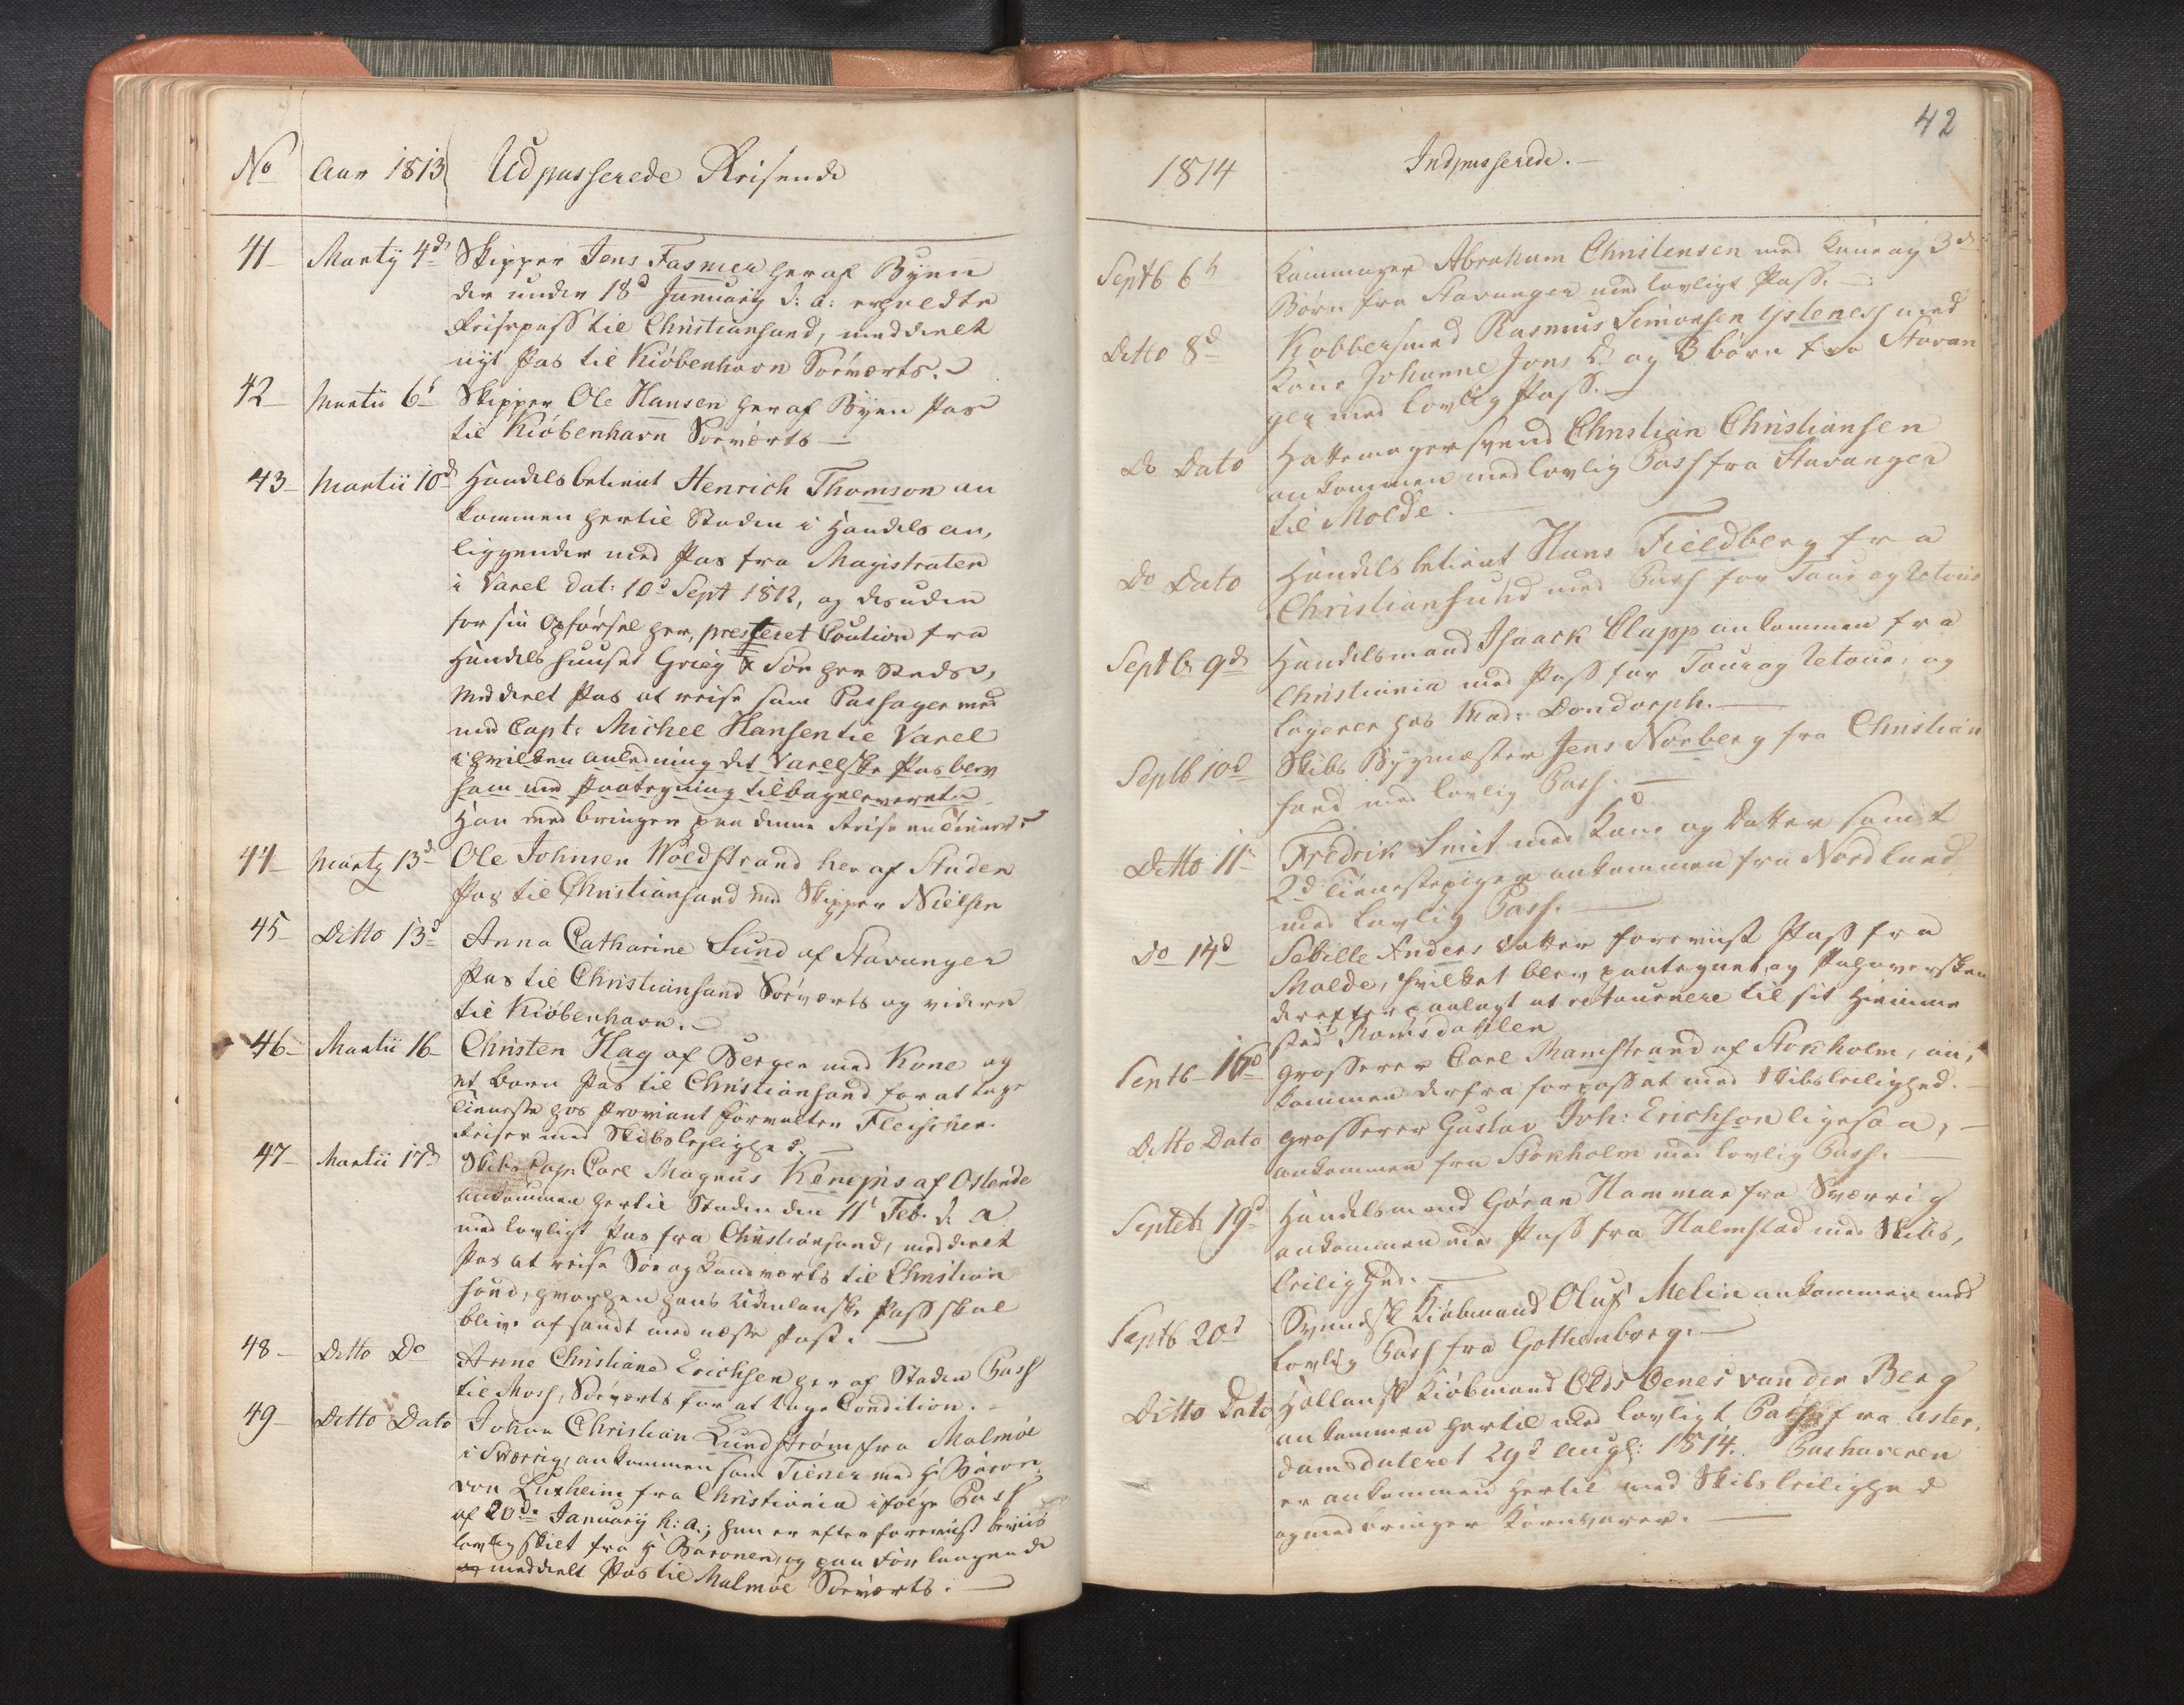 No Aar 1813 Udpasserede Reisende
41 Martÿ 4d Skipper Jens Fasmer her af Byen
der under 18d Januarÿ d: a: erholdte
Reisepass til Christiansand, meddeelt
nyt Pas til Kiöbenhavn Söeværts.
42 Martii 6t Skipper Ole Hansen her af Byen Pas
til Kiöbenhavn Söeværts
43 Martii 10d Handelsbetient Henrich Thomson an
kommen hertil Staden i Handels an,
liggender med Pas fra Magistraten
i Varel dat: 10d Sept 1812, og desuden
for sin Opförsel her, presteret Caution fra
Handelshuuset Grieg & Sön her Steds,
meddeelt Pas at reise som Passager med
med Capt: Michel Hansen til Varel
i hvilken anledning det Varelske Pas blev
ham med Paategning tilbageleveret
Han medbringer paa denne Reise en Tiener
44 Martÿ 13d Ole Johnsen Woldstrand her af Staden
Pas til Christiansand med Skipper Nielsen
45 Ditto 13d Anna Catharine Lund af Stavanger
Pas til Christiansand Söeværts og videre
til Kiöbenhavn.
46 Martii 16 Christen Hag af Bergen med Kone og
et Barn Pas til Christiansand for at tage
Tieneste hos Proviant Forvalter Fleischer
Reiser med Skibsleylighed.
47 Martii 17d Skibs Cap Carl Magnus Kenepis af Ostende
ankommen hertil Staden den 11t Feb. d: a
med lovligt Pas fra Christiansand, meddeelt
Pas at reise Söe og Landværts til Christian
sand, hvorhen hans Udenlanske Pass skal
blive afsendt med næste Post.
48 Ditto Do Anne Christiane Erichsen her af Staden Pass
til Moss, Söeværts for at tage Condition.
49 Ditto Dato Johan Christian Lundström fra Malmöe
i Sverrig, ankommen som Tiener med Hr Baron
von Luxheim fra Christiania ifölge Pass
af 20de Januarÿ h: a.; han er efter foreviist beviis
lovlig skilt fra Hr Baronen, og paa Forlangende
meddeelt Pas til Malmöe Söeværts.
42
1814 Indpasserede.
Septb 6t Kammager Abraham Christensen med Kone og 3de
Börn fra Stavanger med lovligt Pass.
Ditto 8d Kobbersmed Rasmus Simonsen Ystenes med
Kone Johanne Jons D og 3 börn fra Stavan
ger med lovlig Pass.
Do Dato Hattemagersvend Christian Christiansen
ankommen med lovlig Pass fra Stavanger
til Molde.
Do Dato Handelsbetient Hans Fieldberg fra
Christiansund med Pass for Tour og Retour
Septb 9d Handelsmand Isaack Clapp ankommen fra
Christiania med Pass for Tour og Retour, og
logerer hos Mad: Dondorph.
Septb 10d Skibs Bygmester Jens Norberg fra Christian
sand med lovlig Pass.
Ditto 11 Fredrik Smit med Kone og Datter samt
2d Tienestepiger ankommen fra Nordland
med lovlig Pass.
Do 14d Sebille Anders Datter foreviist Pass fra
Molde, hvilket blev paategnet, og Pashaversken
derefter paalagt at retournere til sit Hiemme
sted Romsdahlen
Septb 16d Grosserer Carl Mamstrand af Stokholm, an,
kommen derfra forpasset med Skibsleilighed.
Ditto Dato Grosserer Gustav Joh: Erichson ligesaa,
ankommen fra Stokholm med lovlig Pass.
Septeb 19d Handelsmand Göran Hammar fra Sverrig
ankommen med Pass fra Halmstad med Skibs,
leilighed.
Septb 20d Svensk Kiöbmand Oluf Melin ankommen med
lovlig Pass fra Gothenborg.
Ditto Dato Hollansk Kiöbmand Olds Oenes van der Berg
ankommen hertil med lovligt Pass fra Aster,
dam dateret 29d Aug: 1814. Pashaveren
er ankommen hertil med Skibsleilighed
og medbringer Kornvarer.